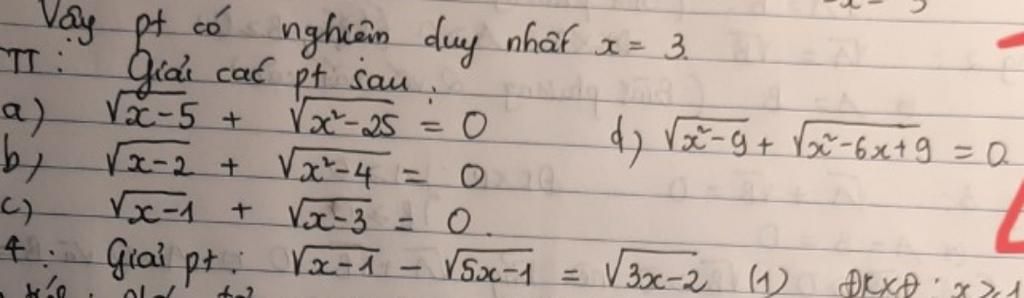 Vậy pt có nghiệm duy nhất x = 3.
TT: Giải các pt sau:
a) √x-5 + √x²-25 = 0
d) √x²-9 + √x²-6x+9 = 0
b) √x-2 + √x²-4 = 0
c) √x-1 + √x-3 = 0.
4: Giải pt: √x-1 - √5x-1 = √3x-2 (1) ĐKXĐ: x ≥ 1